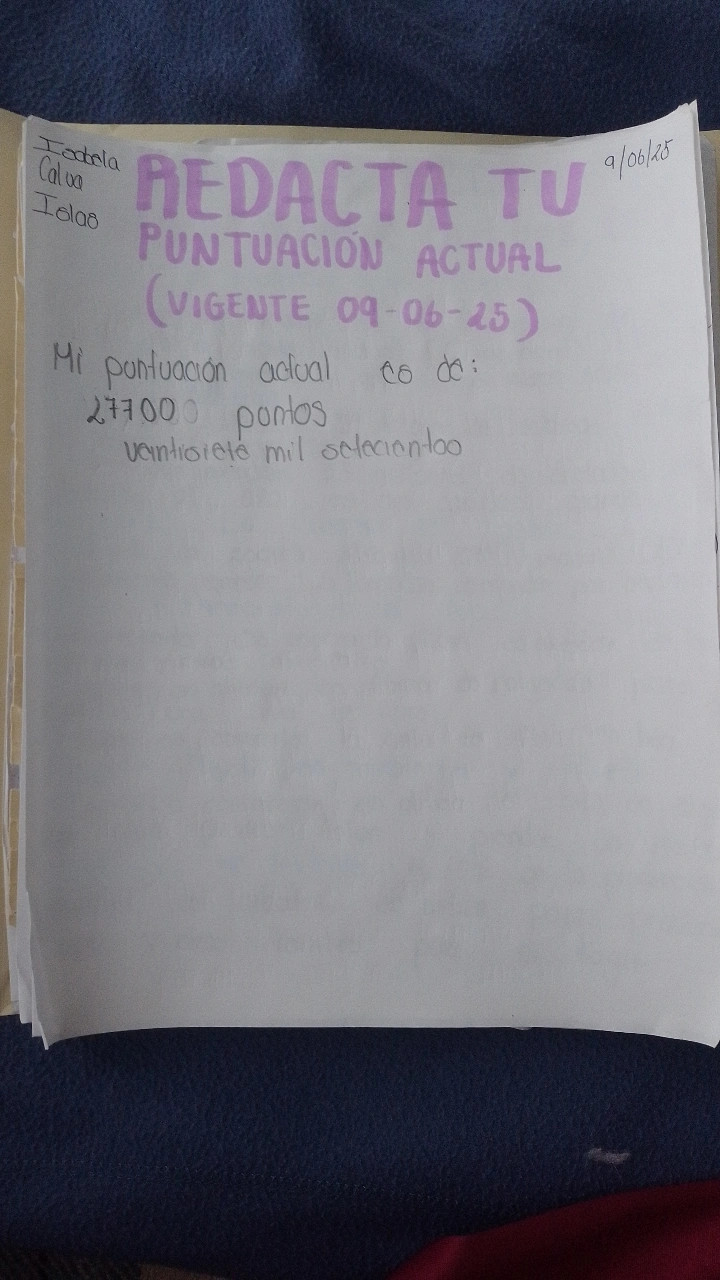 Isabela
Calva
Islas
9/06/25
REDACTA TU
PUNTUACIÓN ACTUAL
(VIGENTE 09-06-25)
Mi puntuación actual es de:
27700 puntos
veintisiete mil setecientos